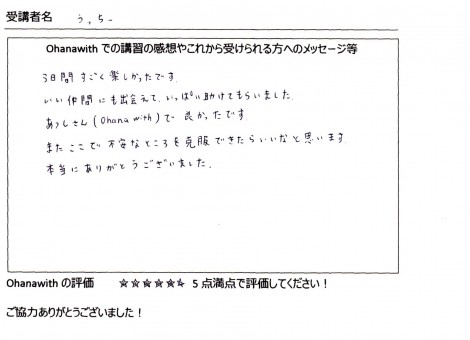 受講者名 うっちー
Ohanawith での講習の感想やこれから受けられる方へのメッセージ等
3日間すごく楽しかったです.
いい仲間にも出会えて、いっぱい助けてもらいました.
あつしさん(Ohana with)で 良かったです
またここで 不安なところを克服できたらいいなと思います.
本当にありがとうございました.
Ohanawith の評価 ☆☆☆☆☆ 5 点満点で評価してください！
ご協力ありがとうございました！